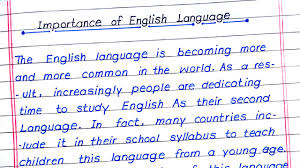 Importance of English Language
The English language is becoming more
and more common in the world. As a res-
-ult, increasingly people are dedicating
time to study English As their second
Language. In fact, many countries inc-
-lude it in their school syllabus to teach
children this language from a young age.
of this language